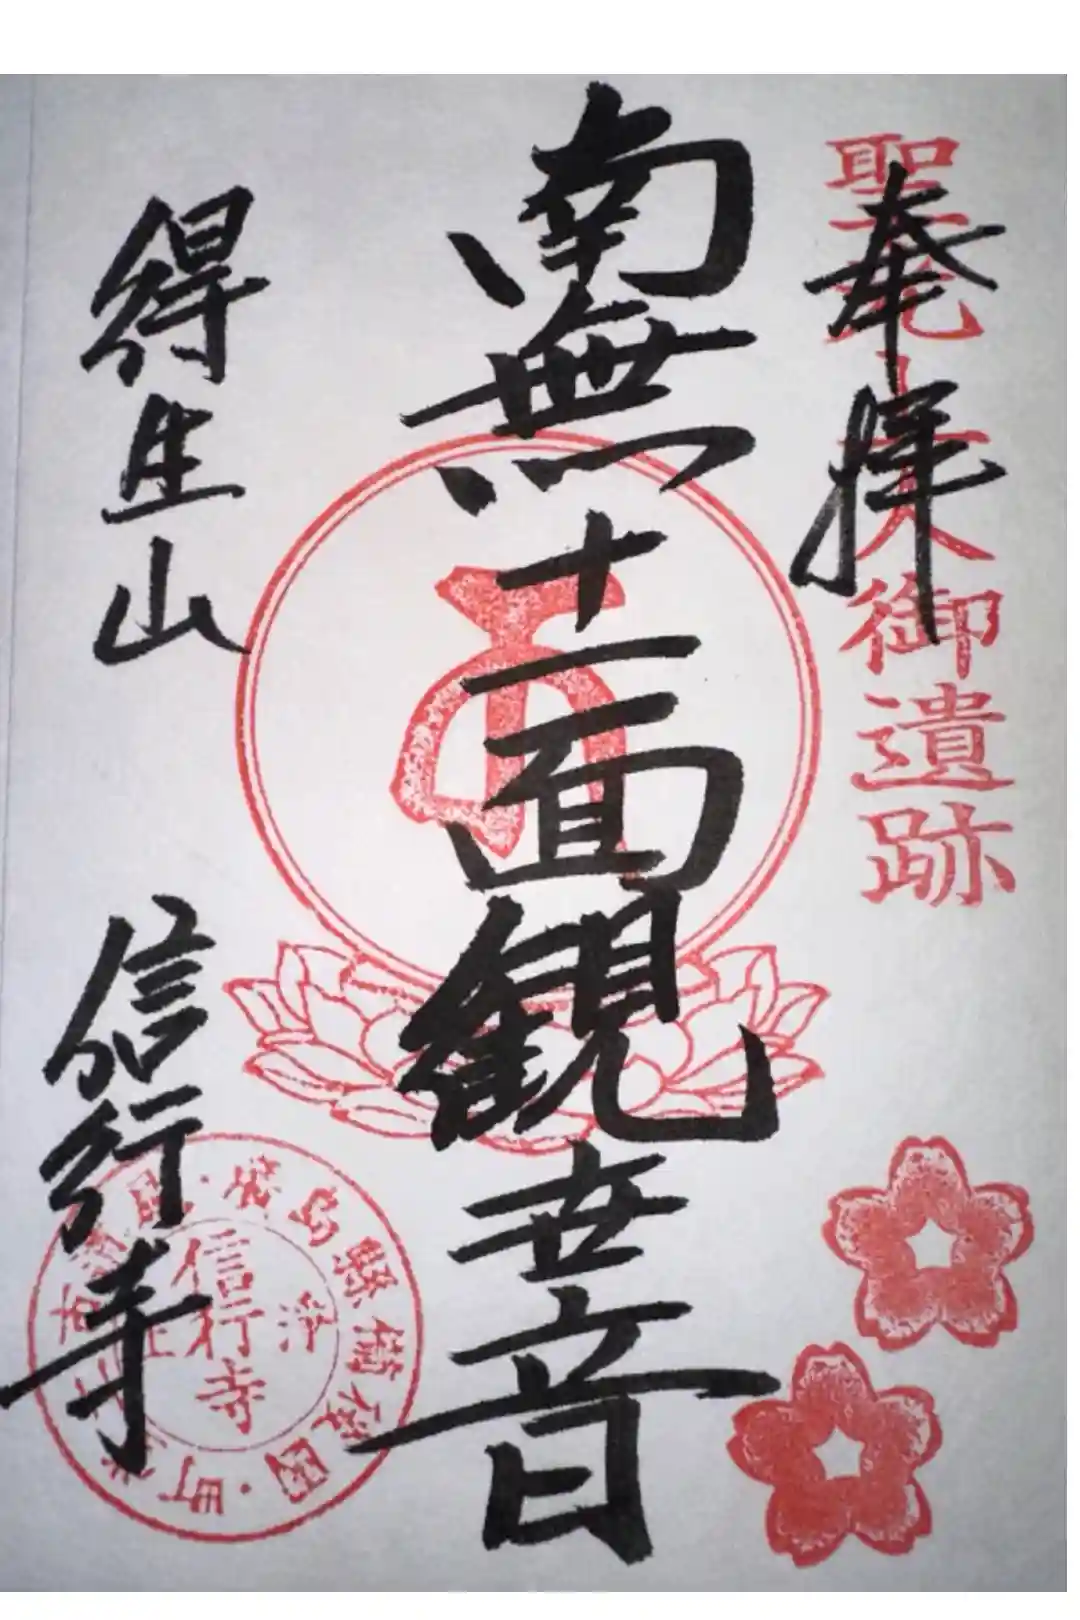 奉拝
聖光大人御遺跡
南無十一面観世音
得生山
信行寺
信行寺